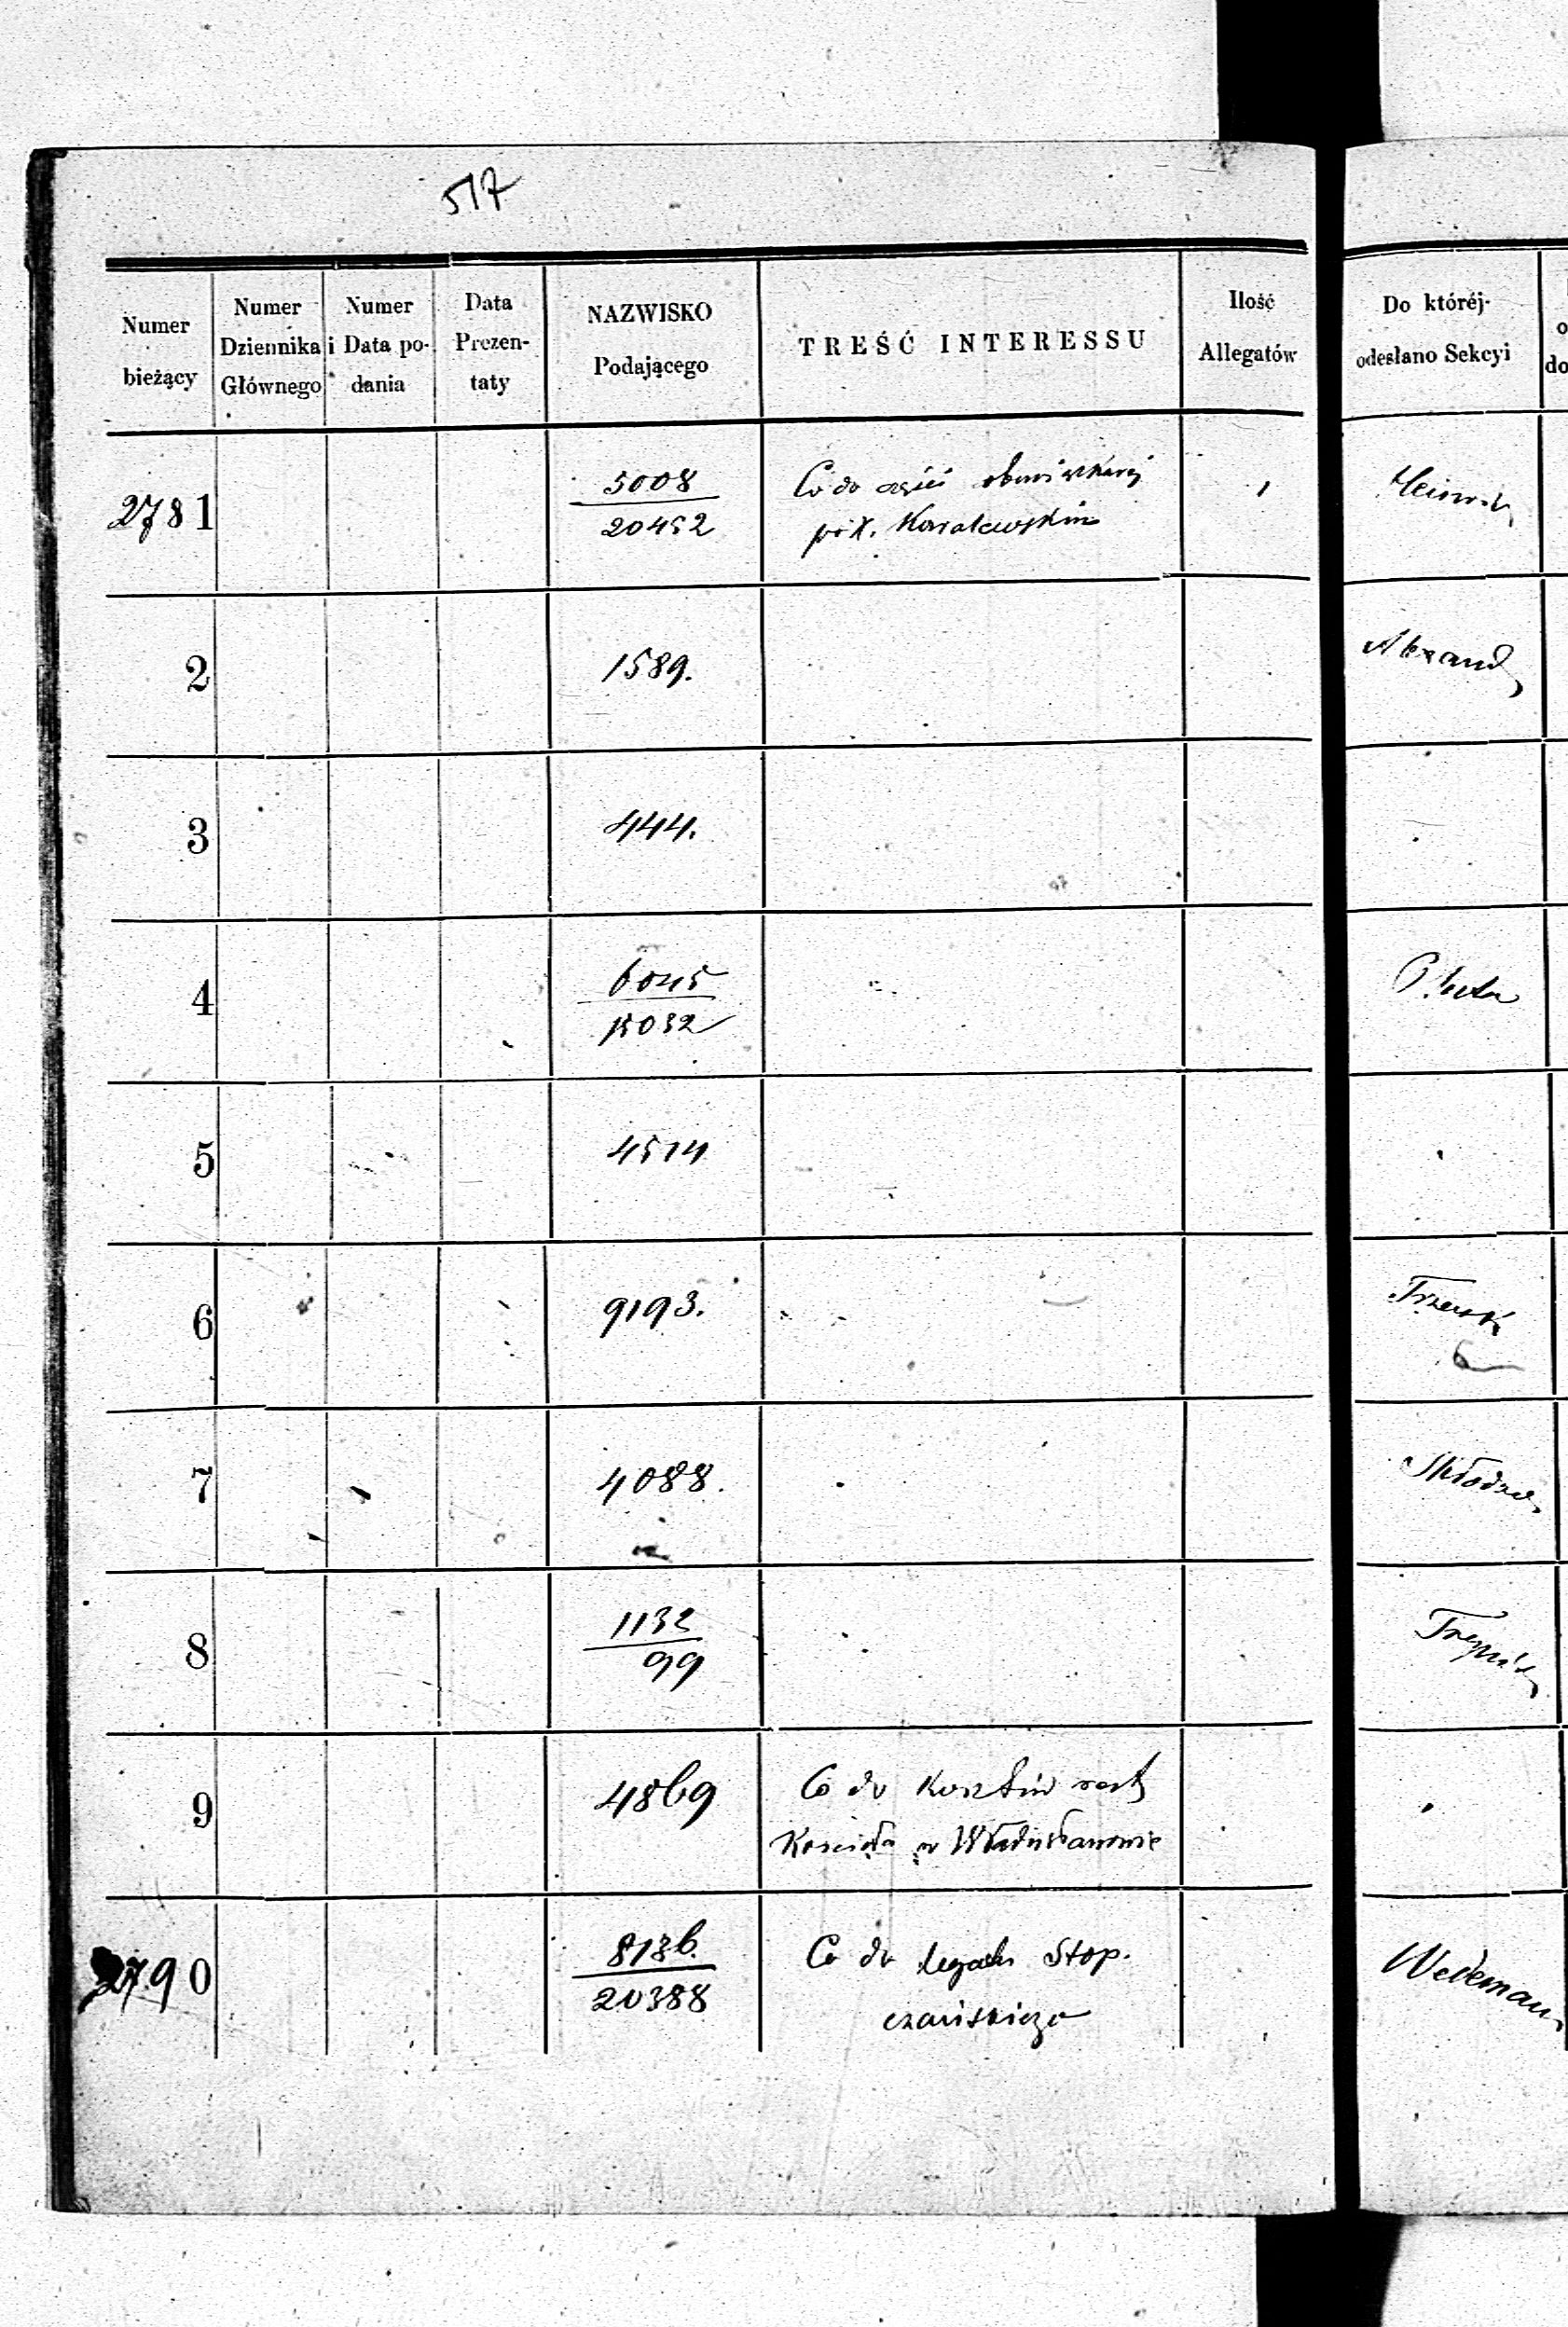 517
Numer bieżący
Numer Dziennika Głównego
Numer i Data podania
Data Prezen-taty
NAZWISKO Podającego
TREŚĆ INTERESSU
Ilość Allegatów
Do któréj odesłano Sekcyi
2781
5008
20452
Co do
po X. Kowalewskim
2
1589.
3
444.
4
6045
15032
5
4514
6
9193.
7
4088.
8
1132
99
9
4869
Co do Kosztów
Kościoła w Władysławowie
2790
8136.
20388
Co do legatu Stop.
czańskiego
Wedeman